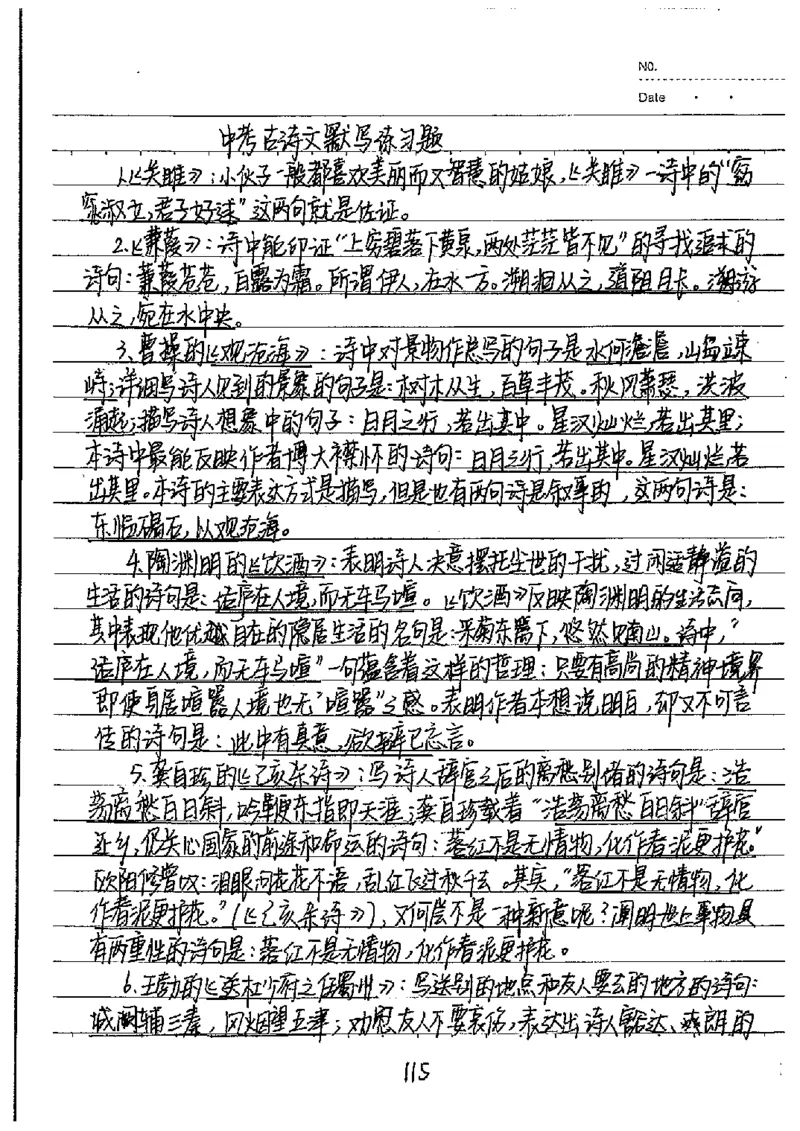 NO.
Date
中考古诗文默写练习题
1.《关雎》：小伙子一般都喜欢美丽而又智慧的姑娘，《关雎》一诗中的“窈
窕淑女，君子好逑”这两句就是佐证。
2.《蒹葭》：诗中能印证“上穷碧落下黄泉，两处茫茫皆不见”的寻找追求的
诗句：蒹葭苍苍，白露为霜。所谓伊人，在水一方。溯洄从之，道阻且长。溯游
从之，宛在水中央。
3、曹操的《观沧海》：诗中对景物作总写的句子是水何澹澹，山岛竦
峙；详细写诗人见到的景象的句子是：树木丛生，百草丰茂。秋风萧瑟，洪波
涌起；描写诗人想象中的句子：日月之行，若出其中。星汉灿烂，若出其里；
本诗中最能反映作者博大襟怀的诗句：日月之行，若出其中。星汉灿烂，若
出其里。本诗的主要表达方式是描写，但是也有两句诗是叙事的，这两句诗是：
东临碣石，以观沧海。
4、陶渊明的《饮酒》：表明诗人决意摆托尘世的干扰，过闲适静谧的
生活的诗句是：结庐在人境，而无车马喧。《饮酒》反映陶渊明的生活志向，
其中表现他优越自在的隐居生活的名句是：采菊东篱下，悠然见南山。诗中，“
结庐在人境，而无车马喧”一句蕴含着这样的哲理：只要有高尚的精神境界
即使身居喧嚣人境也无“喧嚣”之感。表明作者本想说明白，却又不可言
传的诗句是：此中有真意，欲辩已忘言。
5、龚自珍的《己亥杂诗》：写诗人辞官之后的离愁别绪的诗句是：浩
荡离愁白日斜，吟鞭东指即天涯；龚自珍载着“浩荡离愁白日斜”辞官
还乡，仍关心国家的前途和命运的诗句：落红不是无情物，化作春泥更护花。”
欧阳修曾叹：泪眼问花花不语，乱红飞过秋千去。其实，“落红不是无情物，化
作春泥更护花。”（《己亥杂诗》），又何尝不是一种新意呢？阐明世上事物具
有两重性的诗句是：落红不是无情物，化作春泥更护花。
6、王勃的《送杜少府之任蜀州》：写送别的地点和友人要去的地方的诗句：
城阙辅三秦，风烟望五津；劝慰友人不要哀伤，表达出诗人豁达、爽朗的
115